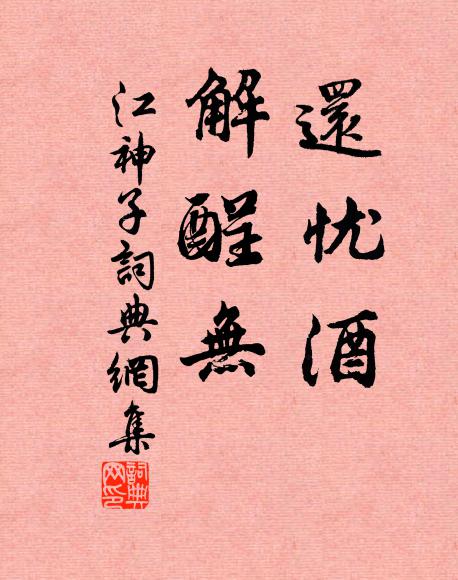 還忧酒
解酲無
江神子詞典網集
詞典网印